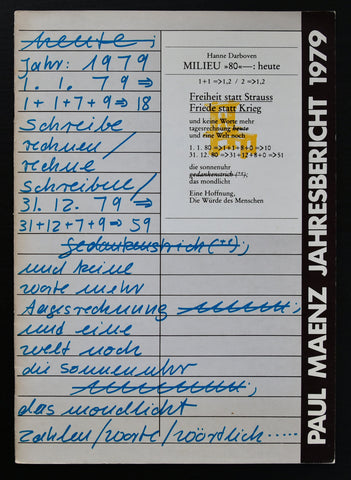 heute;
Jahr: 1979
1. 1. 79 ⇒
1+1+7+9 ⇒ 18
Schreibe
rechnen/
rechne
Schreiben/
31. 12. 79 ⇒
31+12+7+9 ⇒ 59
gedankenstrich(e);
und keine
worte mehr
tagesrechnung heute;
und eine
welt noch
die sonnenuhr
das mondlicht
zahlen/worte/wörtlich.....
Hanne Darboven
MILIEU »80«—: heute
1+1 =>1,2 / 2 =>1,2
Freiheit statt Strauss
Friede statt Krieg
und keine Worte mehr
tagesrechnung heute
und eine Welt noch
1. 1. 80 =>1+1+8+0 =>10
31. 12. 80 =>31+12+8+0 =>51
die sonnenuhr
das mondlicht
Eine Hoffnung,
Die Würde des Menschen
PAUL MAENZ JAHRESBERICHT 1979